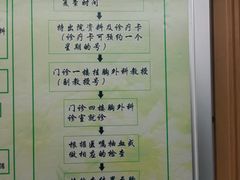 复查时间
持出院资料及诊疗卡
（诊疗卡可预约一个
星期的号）
门诊一楼挂胸外科教授
（副教授号）
门诊四楼胸外科
诊室就诊
根据医嘱抽血或
做相应的检查